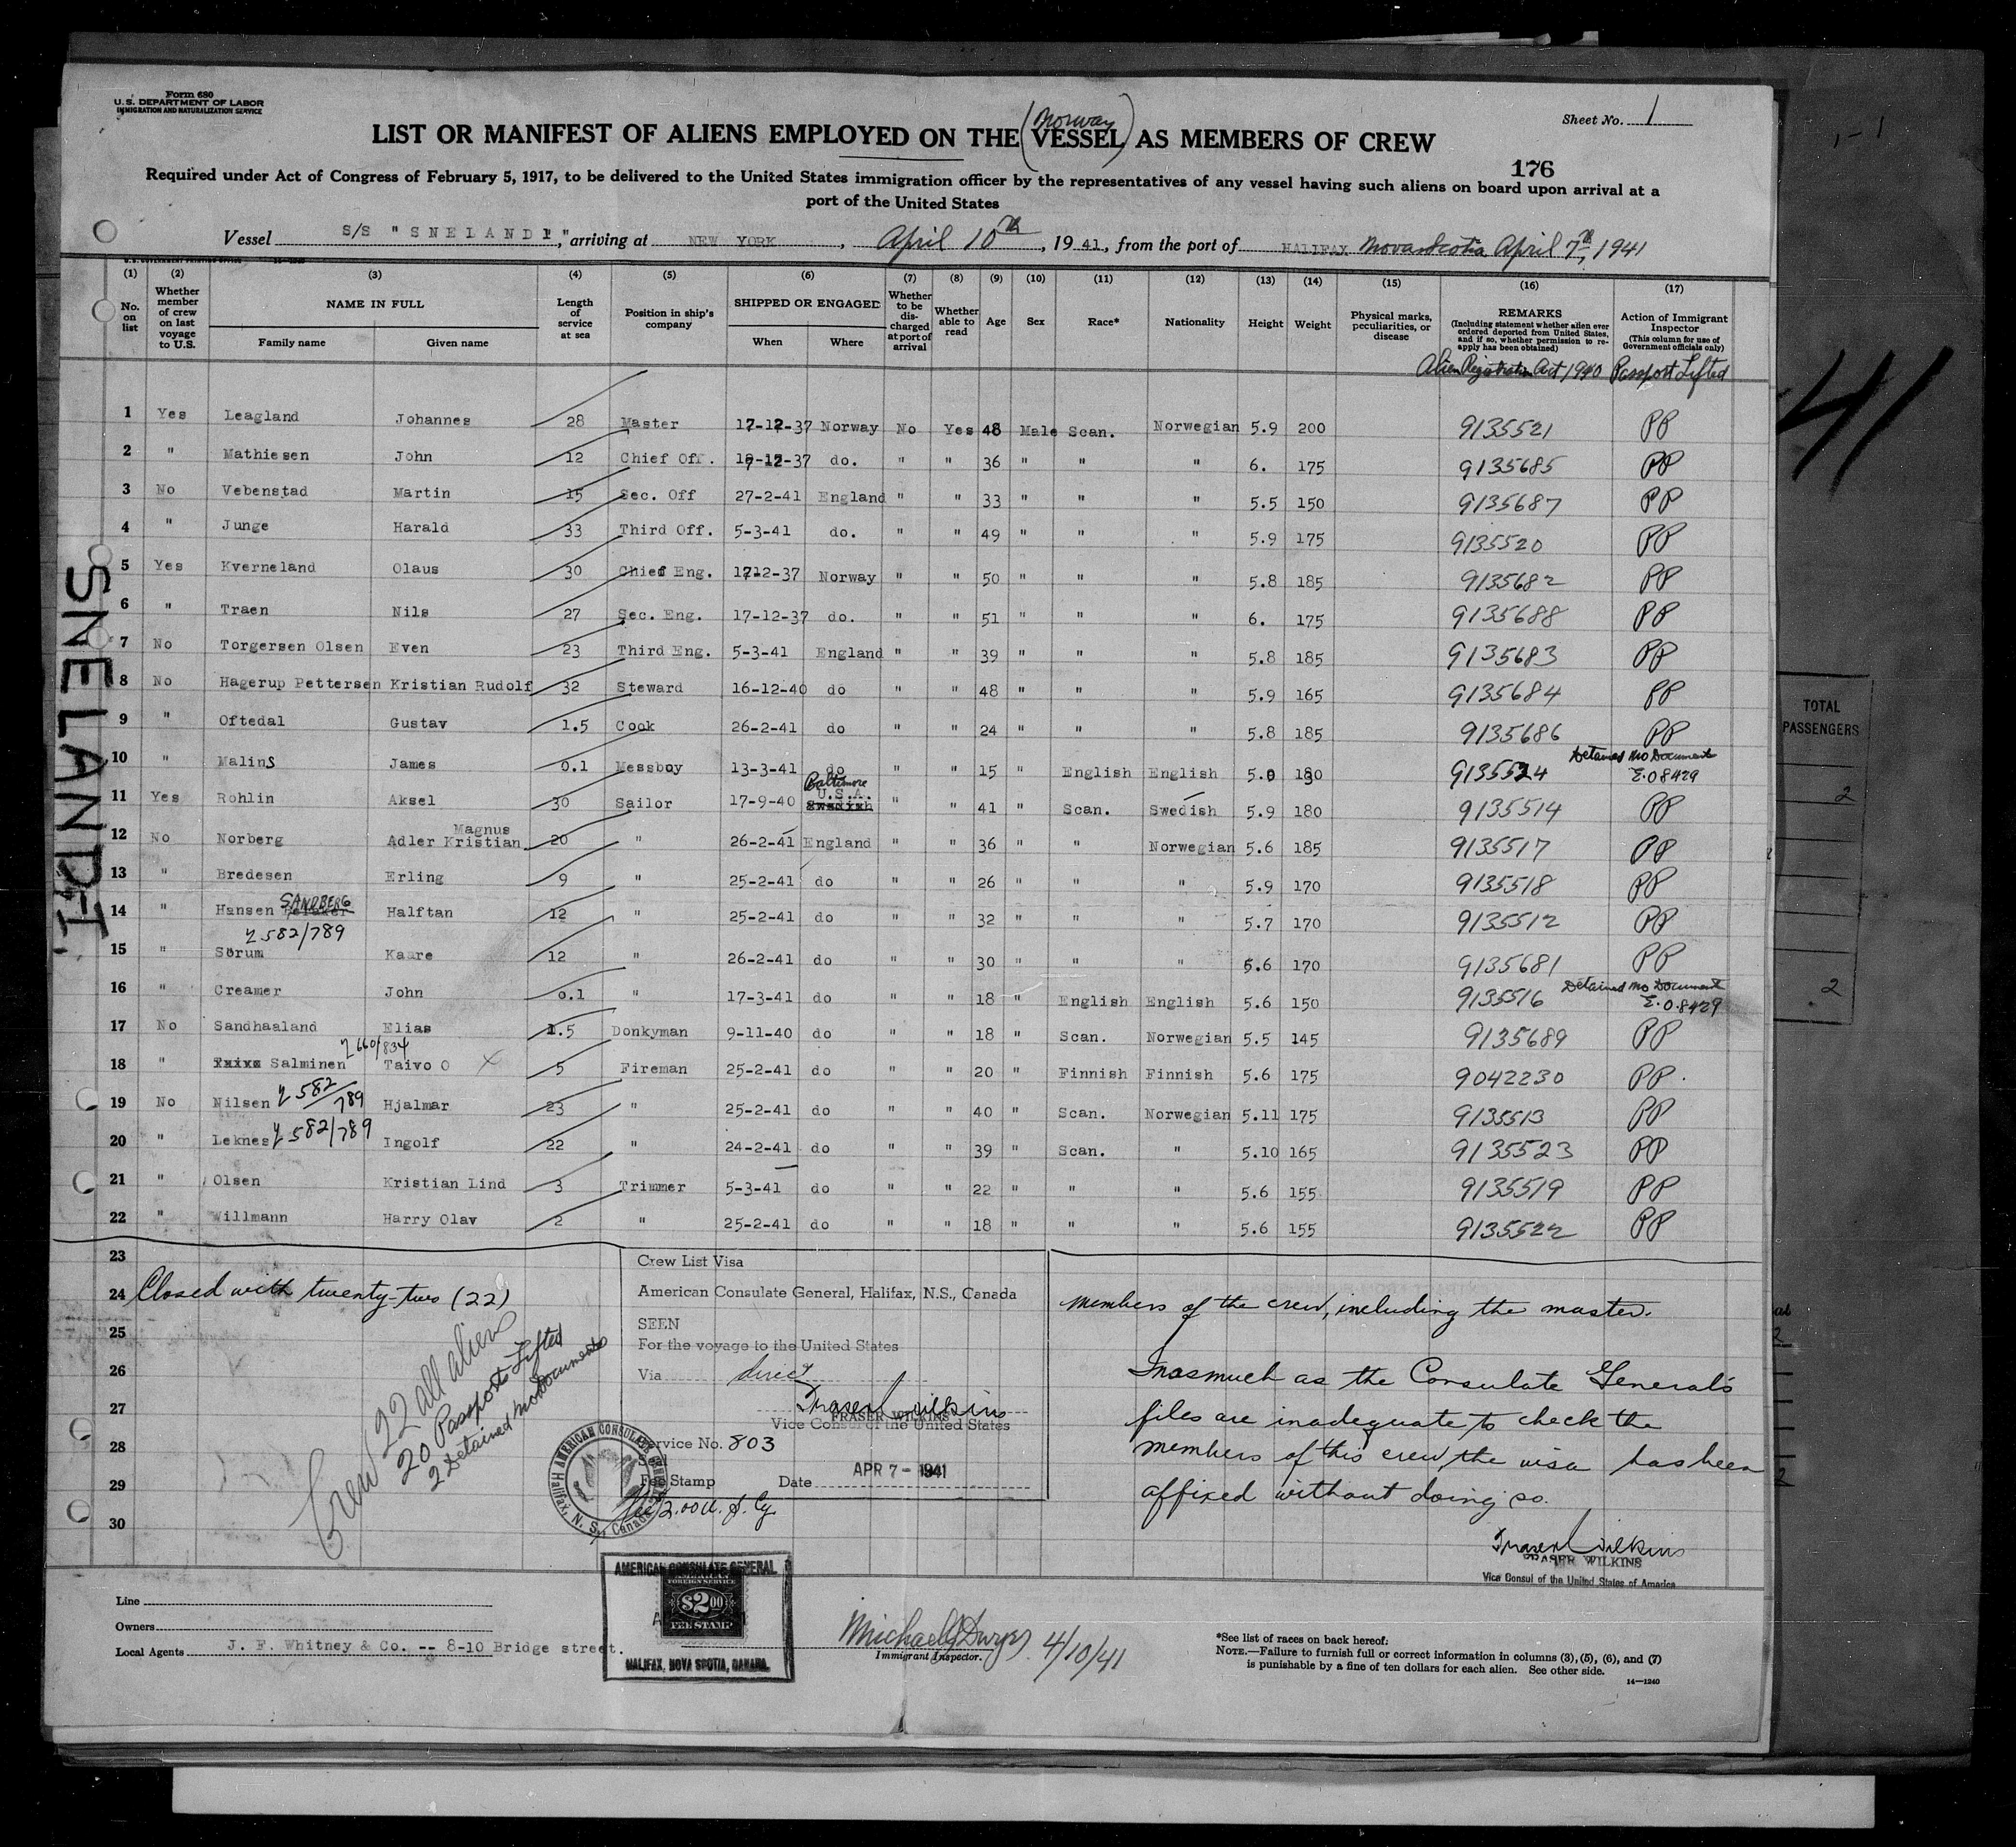 Form 680
U.S. DEPARTMENT OF LABOR
IMMIGRATION AND NATURALIZATION SERVICE
Sheet No. 1
(Norway)
LIST OR MANIFEST OF ALIENS EMPLOYED ON THE VESSEL AS MEMBERS OF CREW
176
Required under Act of Congress of February 5, 1917, to be delivered to the United States immigration officer by the representatives of any vessel having such aliens on board upon arrival at a
port of the United States
Vessel S/S "SNELANDI," arriving at NEW YORK, April 10th, 1941, from the port of HALIFAX Nova Scotia April 7th, 1941
(1) (2) (3) (4) (5) (6) (7) (8) (9) (10) (11) (12) (13) (14) (15) (16) (17)
No. on list
Whether member of crew on last voyage to U.S.
NAME IN FULL
Family name Given name
Length of service at sea
Position in ship's company
SHIPPED OR ENGAGED
When Where
Whether to be discharged at port of arrival
Whether able to read
Age
Sex
Race*
Nationality
Height
Weight
Physical marks, peculiarities, or disease
REMARKS
(Including statement whether alien ever ordered deported from United States, and if so, whether permission to reapply has been obtained)
Action of Immigrant Inspector
(This column for use of Government officials only)
Alien Registration Act 1940 Passport Lifted
1 Yes Leagland Johannes 28 Master 17-12-37 Norway No Yes 48 Male Scan. Norwegian 5.9 200 9135521 PP
2 " Mathiesen John 12 Chief Off. 17-12-37 do. " " 36 " " " 6. 175 9135685 PP
3 No Vebenstad Martin 15 Sec. Off 27-2-41 England " " 33 " " " 5.5 150 9135687 PP
4 " Junge Harald 33 Third Off. 5-3-41 do. " " 49 " " " 5.9 175 9135520 PP
5 Yes Kverneland Olaus 30 Chief Eng. 1712-37 Norway " " 50 " " " 5.8 185 9135682 PP
6 " Traen Nils 27 Sec. Eng. 17-12-37 do. " " 51 " " " 6. 175 9135688 PP
7 No Torgersen Olsen Even 23 Third Eng. 5-3-41 England " " 39 " " " 5.8 185 9135683 PP
8 No Hagerup Pettersen Kristian Rudolf 32 Steward 16-12-40 do " " 48 " " " 5.9 165 9135684 PP
9 " Oftedal Gustav 1.5 Cook 26-2-41 do " " 24 " " " 5.8 185 9135686 PP
10 " Malins James 0.1 Messboy 13-3-41 do " " 15 " English English 5.0 130 9135524 Detained No Document E.O 8429
11 Yes Rohlin Aksel 30 Sailor 17-9-40 Baltimore U.S.A. Swedish " " 41 " Scan. Swedish 5.9 180 9135514 PP
12 No Norberg Adler Kristian Magnus 20 " 26-2-41 England " " 36 " " Norwegian 5.6 185 9135517 PP
13 " Bredesen Erling 9 " 25-2-41 do " " 26 " " " 5.9 170 9135518 PP
14 " Hansen SANDBERG Halftan 12 " 25-2-41 do " " 32 " " " 5.7 170 9135512 PP
2582/789
15 " Sörum Kaare 12 " 26-2-41 do " " 30 " " " 5.6 170 9135681 PP
16 " Creamer John 0.1 " 17-3-41 do " " 18 " English English 5.6 150 9135516 Detained No Document E.O.8429
17 No Sandhaaland Elias 1.5 Donkyman 9-11-40 do " " 18 " Scan. Norwegian 5.5 145 9135689 PP
2660/834
18 " Salminen Taivo O X 5 Fireman 25-2-41 do " " 20 " Finnish Finnish 5.6 175 9042230 PP.
19 No Nilsen 2582/789 Hjalmar 23 " 25-2-41 do " " 40 " Scan. Norwegian 5.11 175 9135513 PP
20 " Leknes 2582/789 Ingolf 22 " 24-2-41 do " " 39 " Scan. " 5.10 165 9135523 PP
21 " Olsen Kristian Lind 3 Trimmer 5-3-41 do " " 22 " " " 5.6 155 9135519 PP
22 " Willmann Harry Olav 2 " 25-2-41 do " " 18 " " " 5.6 155 9135522 PP
23
24 Closed with twenty-two (22) members of the crew, including the master.
25
26
27
28
29
30
Crew 22 all aliens
20 Passports Lifted
2 Detained No Documents
Crew List Visa
American Consulate General, Halifax, N.S., Canada
SEEN
For the voyage to the United States
Via direct
Fraser Wilkins
FRASER WILKINS
Vice Consul of the United States
Service No. 803
Seal
Fee Stamp Date APR 7 - 1941
Fee $2.00 U.S. Cy
AMERICAN CONSULATE GENERAL
Halifax, N. S., Canada
Inasmuch as the Consulate General's
files are inadequate to check the
members of this crew, the visa has been
affixed without doing so.
Fraser Wilkins
FRASER WILKINS
Vice Consul of the United States of America
AMERICAN CONSULATE GENERAL
FOREIGN SERVICE
$2.00
FEE STAMP
HALIFAX, NOVA SCOTIA, CANADA.
Line
Owners
Local Agents J. F. Whitney & Co. -- 8-10 Bridge street.
Michael J Dwyer 4/10/41
Immigrant Inspector.
*See list of races on back hereof.
NOTE.—Failure to furnish full or correct information in columns (3), (5), (6), and (7)
is punishable by a fine of ten dollars for each alien. See other side.
14—1240
SNELANDI.
41
TOTAL
PASSENGERS
2
2